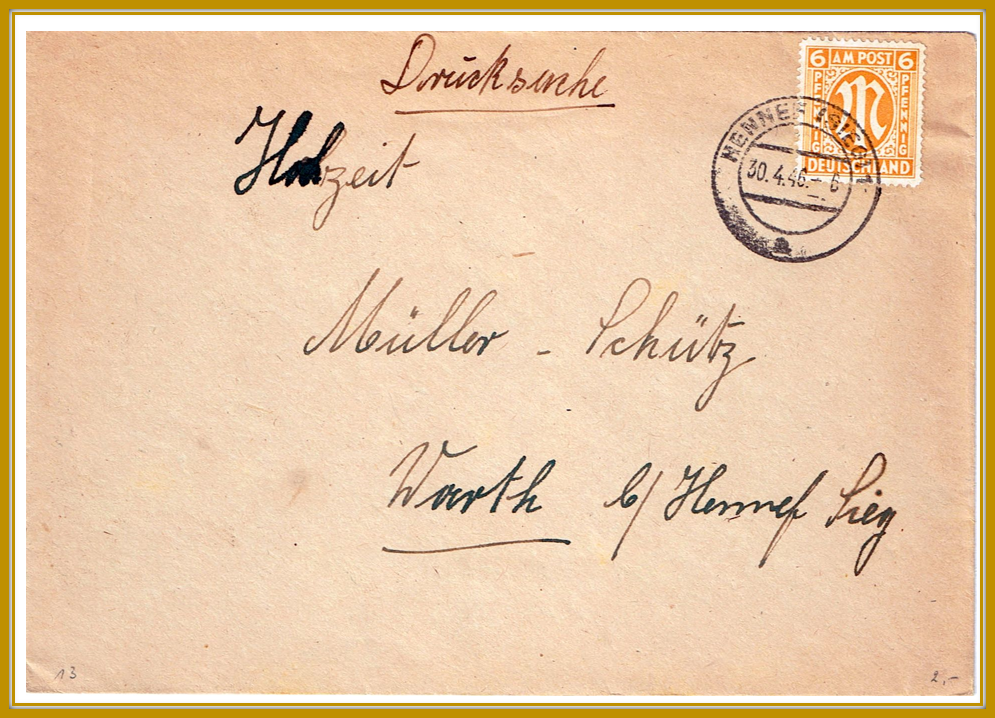 Drucksache
6 AM POST 6
PFENNIG
PFENNIG
DEUTSCHLAND
Hochzeit
HENNEF (SIEG) 1
30.4.46.-6
a
Müller - Schütz
Warth b/ Hennef Sieg
13
2,-